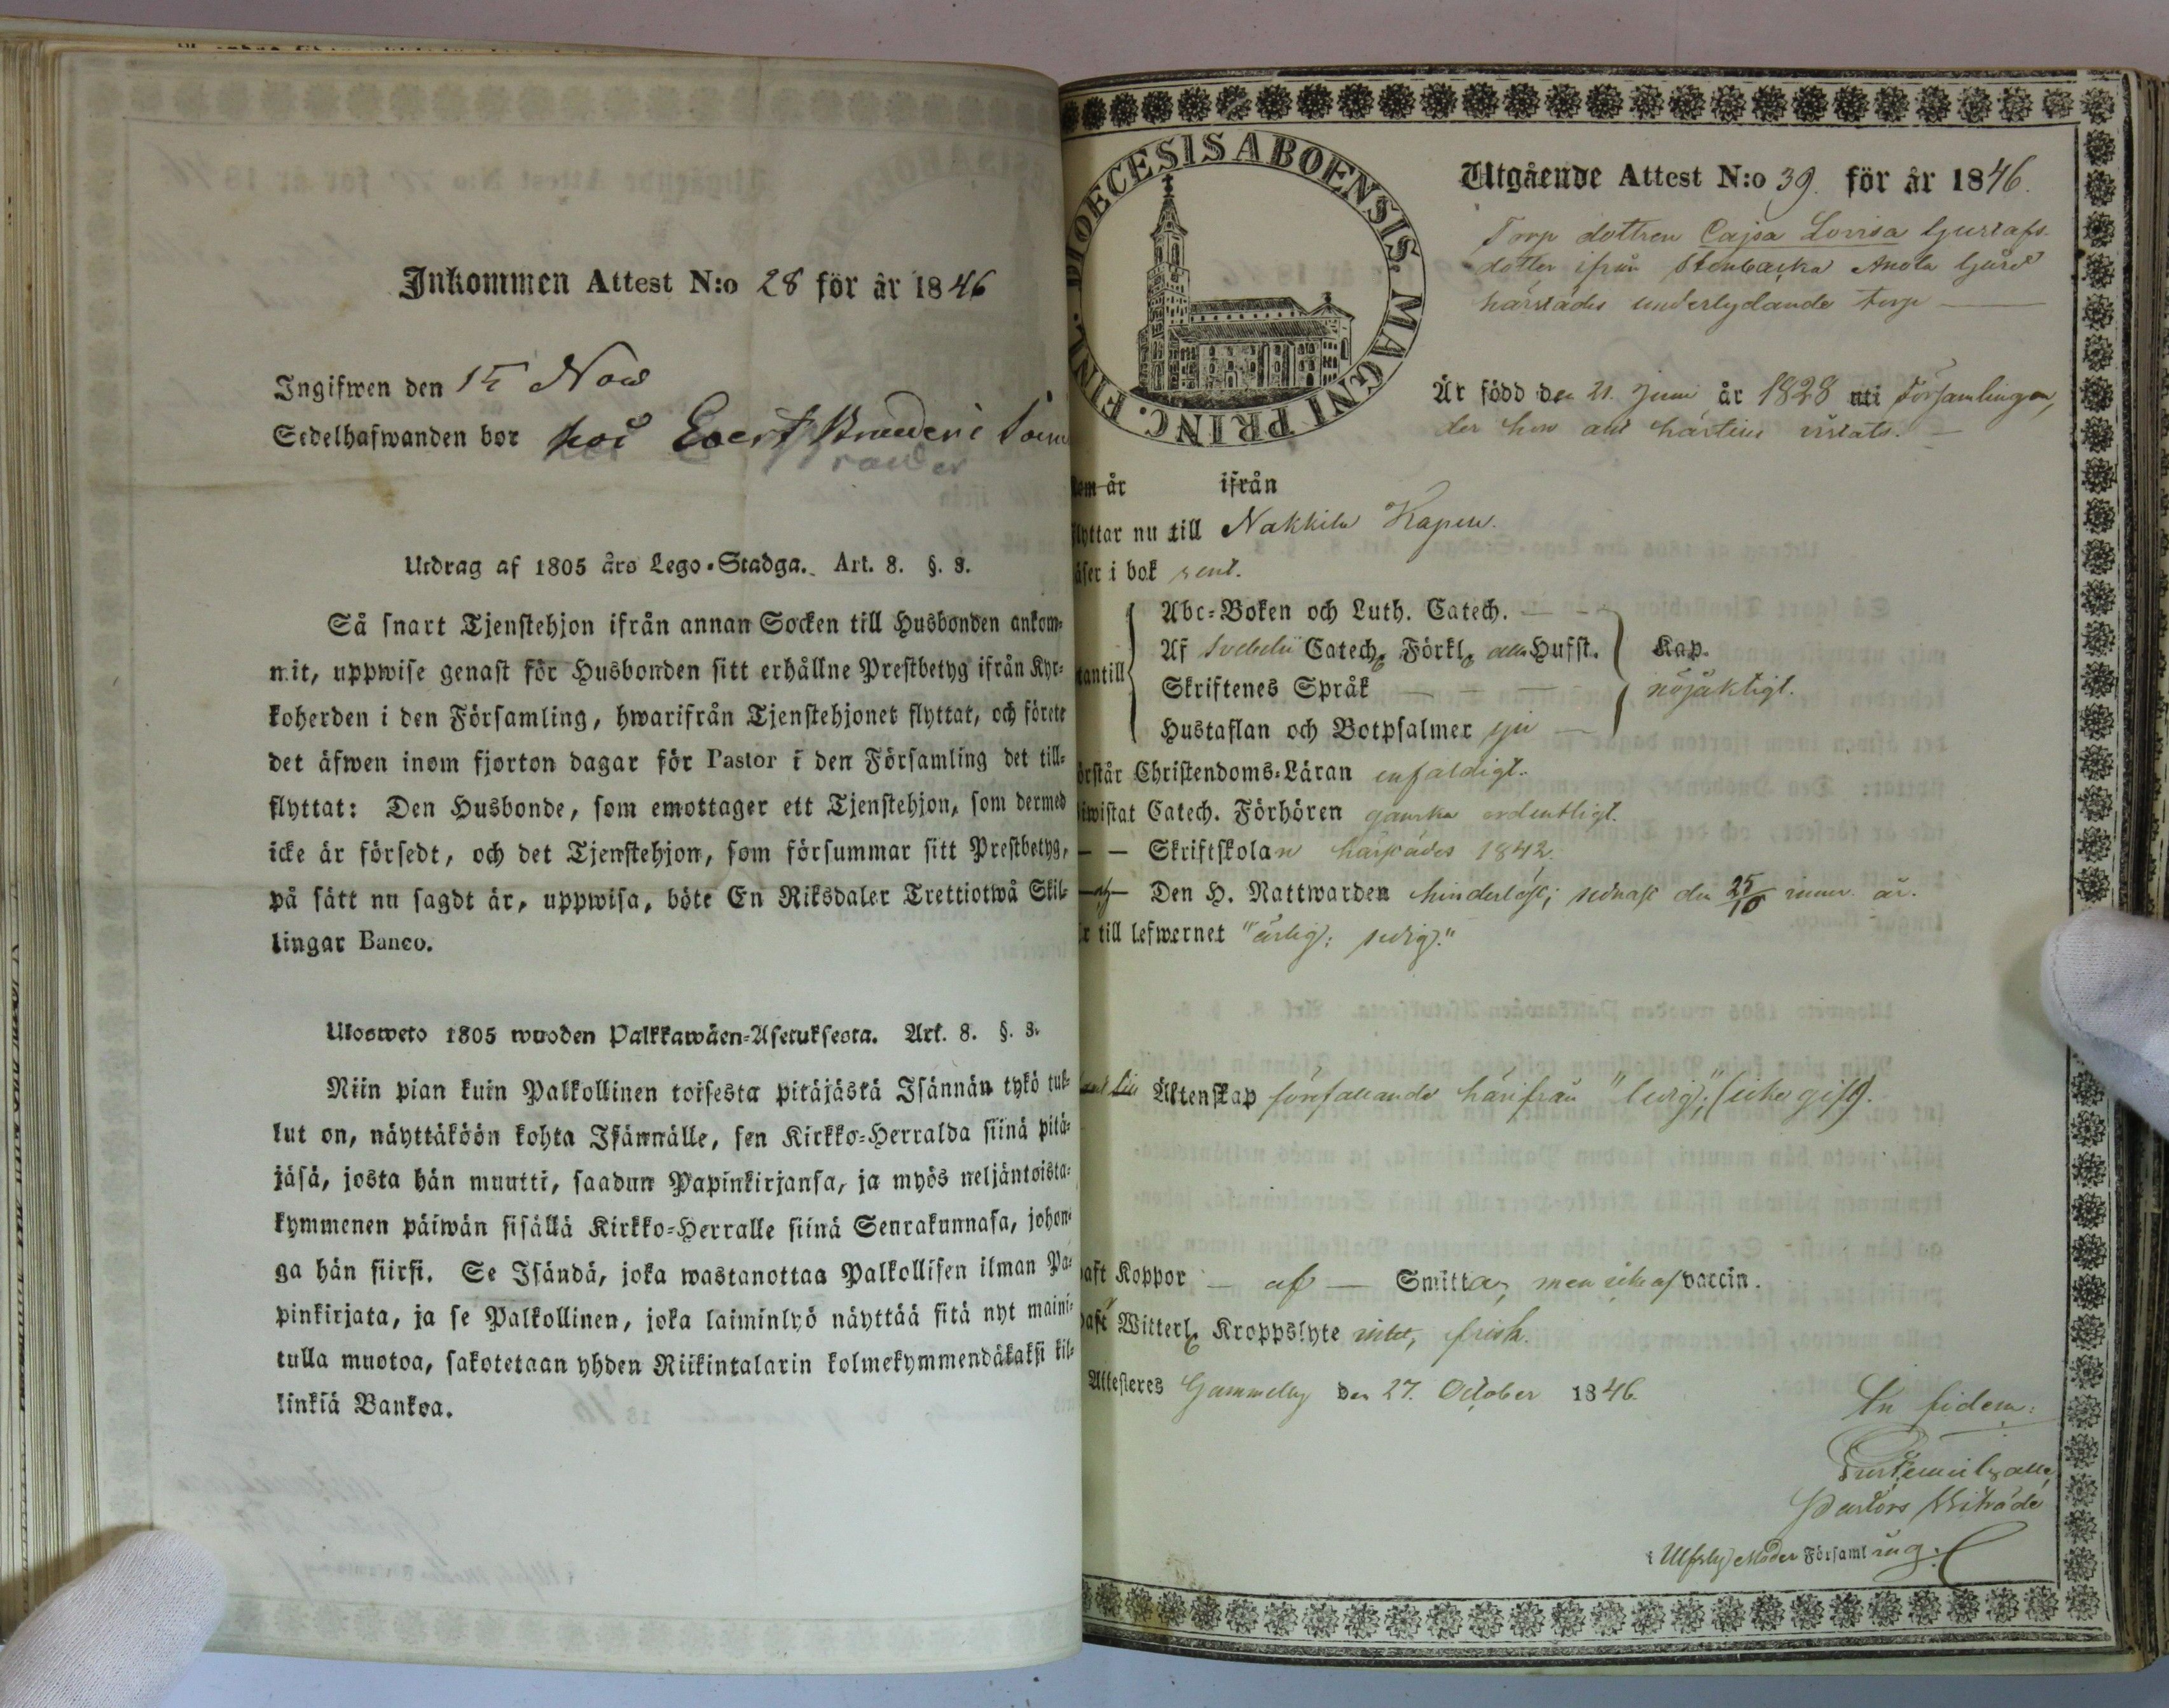 Inkommen Attest N:o 28 för år 1846
Ingifwen den 15 Nov
Sedelhafwanden bor hos Evert
Brander
Utdrag af 1805 års Lego-Stadga. Art. 8. §. 3.
Så snart Tjenstehjon ifrån annan Socken till Husbonden ankom-
mit, uppwise genast för Husbonden sitt erhållne Prestbetyg ifrån Kyr-
koherden i den Församling, hwarifrån Tjenstehjonet flyttat, och förete
det äfwen inom fjorton dagar för Pastor i den Församling det till-
flyttat: Den Husbonde, som emottager ett Tjenstehjon, som dermed
icke är försedt, och det Tjenstehjon, som försummar sitt Prestbetyg,
på sätt nu sagdt är, uppwisa, böte En Riksdaler Trettiotwå Skil-
lingar Banco.
Ulosweto 1805 wuoden Palkkawäen-Asetuksesta. Art. 8. §. 3.
Niin pian kuin Palkollinen toisesta pitäjästä Isännän tykö tul-
lut on, näyttäköön kohta Isännälle, sen Kirkko-Herralda siinä pitä-
jäsä, josta hän muutti, saadun Papinkirjansa, ja myös neljäntoista-
kymmenen päiwän sisällä Kirkko-Herralle siinä Seurakunnasa, johon-
ga hän siirsi. Se Isändä, joka wastanottaa Palkollisen ilman Pa-
pinkirjata, ja se Palkollinen, joka laiminlyö näyttää sitä nyt maini-
tulla muotoa, sakotetaan yhden Riikintalarin kolmekymmendäkaksi kil-
linkiä Bankoa.
DIOECESIS ABOENSIS. MAGNI PRINC. FINL.
Utgående Attest N:o 39. för år 1846.
Torp dottren Cajsa Lovisa Gustafs-
dotter ifrån Stenbacka Anola Gård
härstädes underlydande torp
Är född den 21. Juni år 1828 uti Församlingen,
der hon
som år ifrån
flyttar nu till Nakkila Kapell.
läser i bok rent.
Abc-Boken och Luth. Catech. — —
Af Svebelii Catech. Förkl. Hufst. Kap.
utantill
Skriftenes Språk — — — nöjaktigt.
Hustaflan och Botpsalmer —
förstår Christendoms-Läran enfaldigt.
biwistat Catech. Förhören ganska ordentligt.
— — Skriftskolan härstädes 1842.
— — Den H. Nattwarden hinderlöst; senast den 25/10 innev. år.
är till lefwernet "ärlig; sedig."
till Äktenskap härifrån "ledig," (icke gift).
haft Koppor — af — Smitta, men icke af vaccin.
haft Witterl. Kroppslyte intet, frisk.
Attesteres Gammelby den 27. October 1846.
In fidem:
Pastors
i Ulfsby Moder Församling.